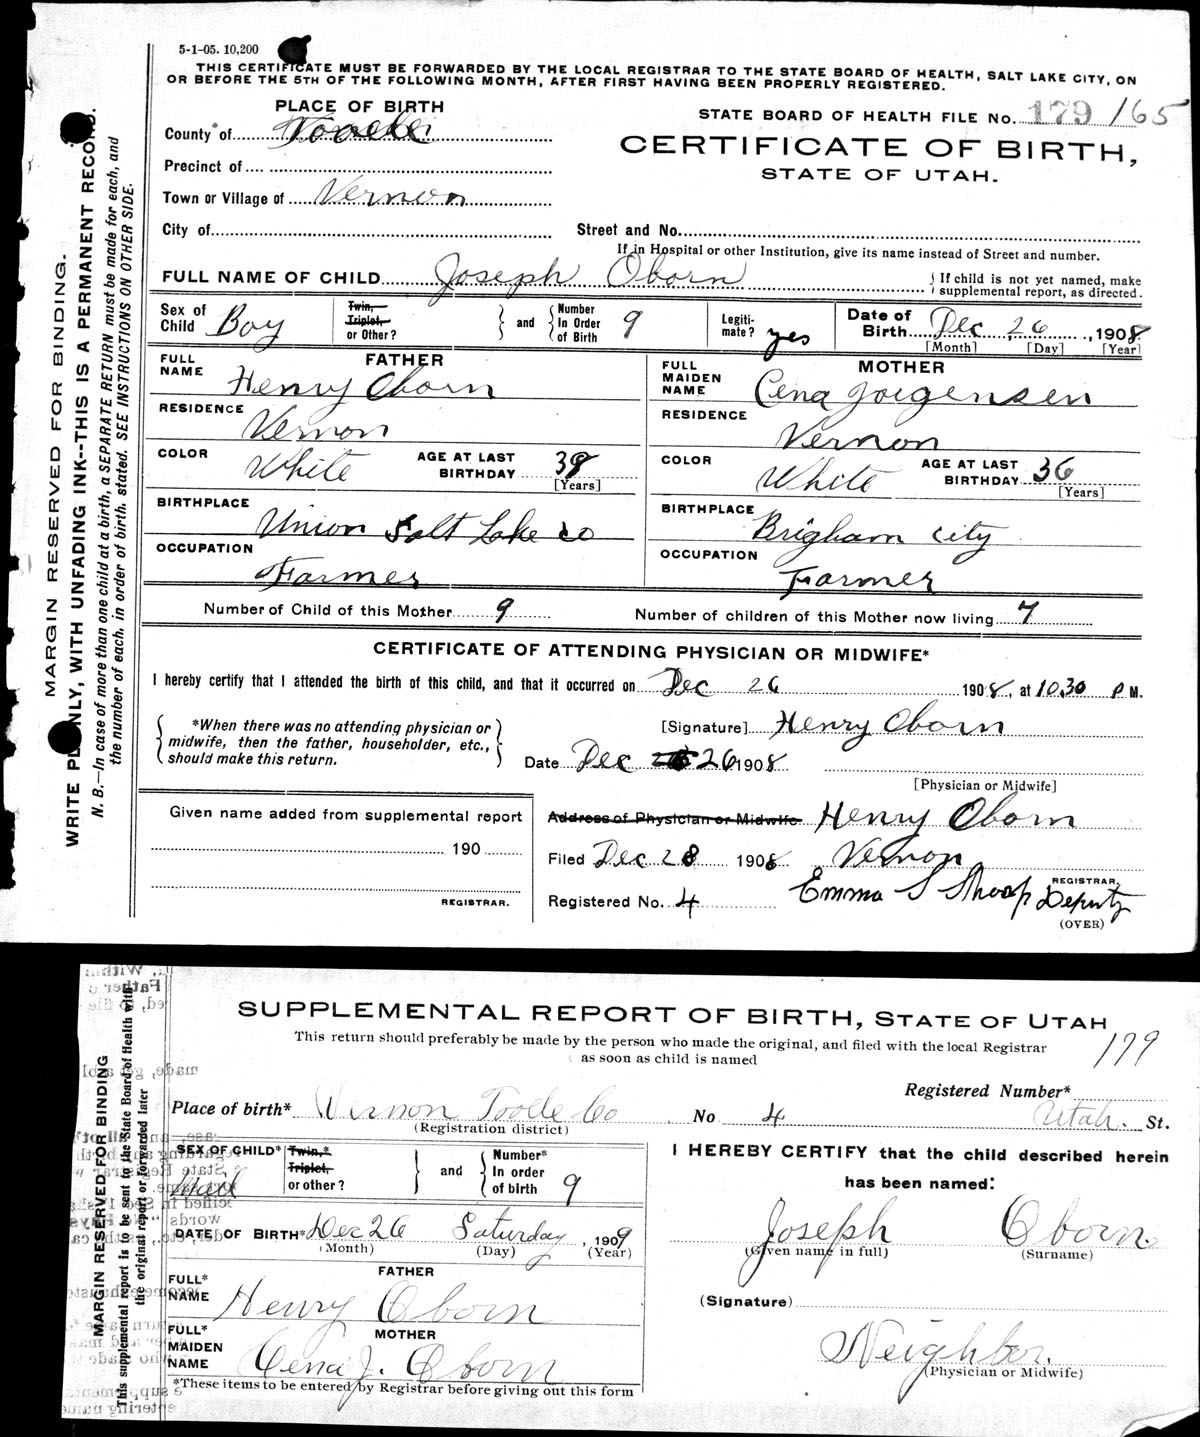 5-1-05. 10,200
THIS CERTIFICATE MUST BE FORWARDED BY THE LOCAL REGISTRAR TO THE STATE BOARD OF HEALTH, SALT LAKE CITY, ON
OR BEFORE THE 5TH OF THE FOLLOWING MONTH, AFTER FIRST HAVING BEEN PROPERLY REGISTERED.
PLACE OF BIRTH
STATE BOARD OF HEALTH FILE No. 179 165
County of Tooele
CERTIFICATE OF BIRTH,
STATE OF UTAH.
Precinct of
Town or Village of Vernon
City of
Street and No.
If in Hospital or other Institution, give its name instead of Street and number.
FULL NAME OF CHILD Joseph Oborn
If child is not yet named, make
supplemental report, as directed.
Sex of Child Boy
Twin, Triplet, or Other?
and
Number In Order of Birth 9
Legiti- mate? yes
Date of Birth Dec 26, 1908
[Month] [Day] [Year]
FATHER
FULL NAME Henry Oborn
RESIDENCE Vernon
COLOR White
AGE AT LAST BIRTHDAY 38
[Years]
BIRTHPLACE Union Salt Lake co
OCCUPATION Farmer
MOTHER
FULL MAIDEN NAME Cena Jorgensen
RESIDENCE Vernon
COLOR White
AGE AT LAST BIRTHDAY 36
[Years]
BIRTHPLACE Brigham city
OCCUPATION Farmer
Number of Child of this Mother 9
Number of children of this Mother now living 7
CERTIFICATE OF ATTENDING PHYSICIAN OR MIDWIFE*
I hereby certify that I attended the birth of this child, and that it occurred on Dec 26 1908, at 10.30 P M.
*When there was no attending physician or
midwife, then the father, householder, etc.,
should make this return.
[Signature] Henry Oborn
Date Dec 26 1908
[Physician or Midwife]
Given name added from supplemental report
190
REGISTRAR.
Address of Physician or Midwife Henry Oborn
Filed Dec 28 1908 Vernon
Registered No. 4 Emma S Sharp Deputy
REGISTRAR
(OVER)
MARGIN RESERVED FOR BINDING.
WRITE PLAINLY, WITH UNFADING INK--THIS IS A PERMANENT RECORD.
N. B.—In case of more than one child at a birth, a SEPARATE RETURN must be made for each, and
the number of each, in order of birth, stated. SEE INSTRUCTIONS ON OTHER SIDE.
SUPPLEMENTAL REPORT OF BIRTH, STATE OF UTAH
This return should preferably be made by the person who made the original, and filed with the local Registrar
as soon as child is named
179
Registered Number*
Place of birth* Vernon Tooele Co No 4 Utah. St.
(Registration district)
SEX OF CHILD* Mail
Twin,* Triplet, or other?
and
Number* In order of birth 9
DATE OF BIRTH* Dec 26 Saturday, 1909
(Month) (Day) (Year)
FATHER
FULL* NAME Henry Oborn
MOTHER
FULL* MAIDEN NAME Cena J. Oborn
*These items to be entered by Registrar before giving out this form
I HEREBY CERTIFY that the child described herein
has been named:
Joseph Oborn.
(Given name in full) (Surname)
(Signature)
Neighbor.
(Physician or Midwife)
MARGIN RESERVED FOR BINDING
This supplemental report is to be sent to the State Board of Health with
the original report or forwarded later